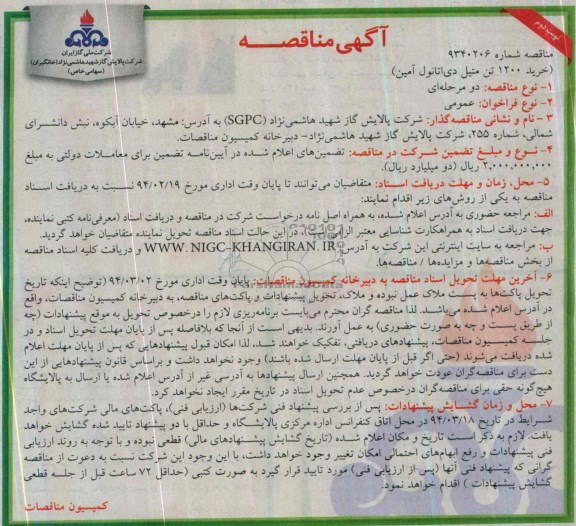 نوبت دوم
آگهی مناقصه
شرکت ملی گاز ایران
شرکت پالایش گاز شهید هاشمی نژاد (خانگیران)
(سهامی خاص)
مناقصه شماره ۹۳۴۰۲۰۶
(خرید ۱۲۰۰ تن متیل دی‌اتانول آمین)
۱- نوع مناقصه: دو مرحله‌ای
۲- نوع فراخوان: عمومی
۳- نام و نشانی مناقصه‌گذار: شرکت پالایش گاز شهید هاشمی‌نژاد (SGPC) به آدرس: مشهد، خیابان آبکوه، نبش دانشسرای
شمالی، شماره ۲۵۵، شرکت پالایش گاز شهید هاشمی‌نژاد- دبیرخانه کمیسیون مناقصات.
۴- نوع و مبلغ تضمین شرکت در مناقصه: تضمین‌های اعلام شده در آیین‌نامه تضمین برای معاملات دولتی به مبلغ
۲,۰۰۰,۰۰۰,۰۰۰ ریال (دو میلیارد ریال).
۵- محل، زمان و مهلت دریافت اسناد: متقاضیان می‌توانند تا پایان وقت اداری مورخ ۹۴/۰۲/۱۹ نسبت به دریافت اسناد
مناقصه به یکی از روش‌های زیر اقدام نمایند:
الف: مراجعه حضوری به آدرس اعلام شده، به همراه اصل نامه درخواست شرکت در مناقصه و دریافت اسناد (معرفی‌نامه کتبی نماینده،
جهت دریافت اسناد به همراه کارت شناسایی معتبر الزامی است)، در این حالت اسناد مناقصه تحویل نماینده متقاضیان خواهد گردید.
ب: مراجعه به سایت اینترنتی این شرکت به آدرس WWW.NIGC-KHANGIRAN.IR و دریافت کلیه اسناد مناقصه
از بخش مناقصه‌ها و مزایده‌ها / مناقصه‌ها.
۶- آخرین مهلت تحویل اسناد مناقصه به دبیرخانه کمیسیون مناقصات: پایان وقت اداری مورخ ۹۴/۰۳/۰۲ (توضیح اینکه تاریخ
تحویل پاکت‌ها به پست ملاک عمل نبوده و ملاک، تحویل پیشنهادات و پاکت‌های مناقصه، به دبیرخانه کمیسیون مناقصات، واقع
در آدرس اعلام شده می‌باشد. لذا مناقصه گران محترم می‌بایست برنامه‌ریزی لازم را درخصوص تحویل به موقع پیشنهادات (چه
از طریق پست و چه به صورت حضوری) به عمل آورند. بدیهی است از آنجا که بلافاصله پس از پایان مهلت تحویل اسناد و در
جلسه کمیسیون مناقصات، پیشنهادهای دریافتی، تفکیک خواهند شد، لذا امکان قبول پیشنهادهایی که پس از پایان مهلت اعلام
شده دریافت می‌شوند (حتی اگر قبل از پایان مهلت ارسال شده باشند) وجود نخواهد داشت و براساس قانون پیشنهادهایی از این
دست برای مناقصه‌گران عودت خواهد گردید. همچنین ارسال پیشنهادها به آدرسی غیر از آدرس اعلام شده یا ارسال به پالایشگاه
هیچ‌گونه حقی برای مناقصه‌گران درخصوص عدم تحویل اسناد در تاریخ مقرر ایجاد نخواهد کرد.
۷- محل و زمان گشایش پیشنهادات: پس از بررسی پیشنهاد فنی شرکت‌ها (ارزیابی فنی)، پاکت‌های مالی شرکت‌های واجد
شرایط در تاریخ ۹۴/۰۳/۱۸ در محل اتاق کنفرانس اداره مرکزی پالایشگاه و حداقل با دو پیشنهاد تایید شده گشایش خواهد
یافت. لازم به ذکر است تاریخ و مکان اعلام شده (تاریخ گشایش پیشنهادهای مالی) قطعی نبوده و با توجه به روند ارزیابی
فنی پیشنهادات و رفع ابهام‌های احتمالی امکان تغییر وجود خواهد داشت، با این وجود این شرکت نسبت به دعوت از مناقصه
گرانی که پیشنهاد فنی آنها (پس از ارزیابی فنی) مورد تایید قرار گیرد به صورت کتبی (حداقل ۷۲ ساعت قبل از جلسه قطعی
گشایش پیشنهادات) اقدام خواهد نمود.
کمیسیون مناقصات